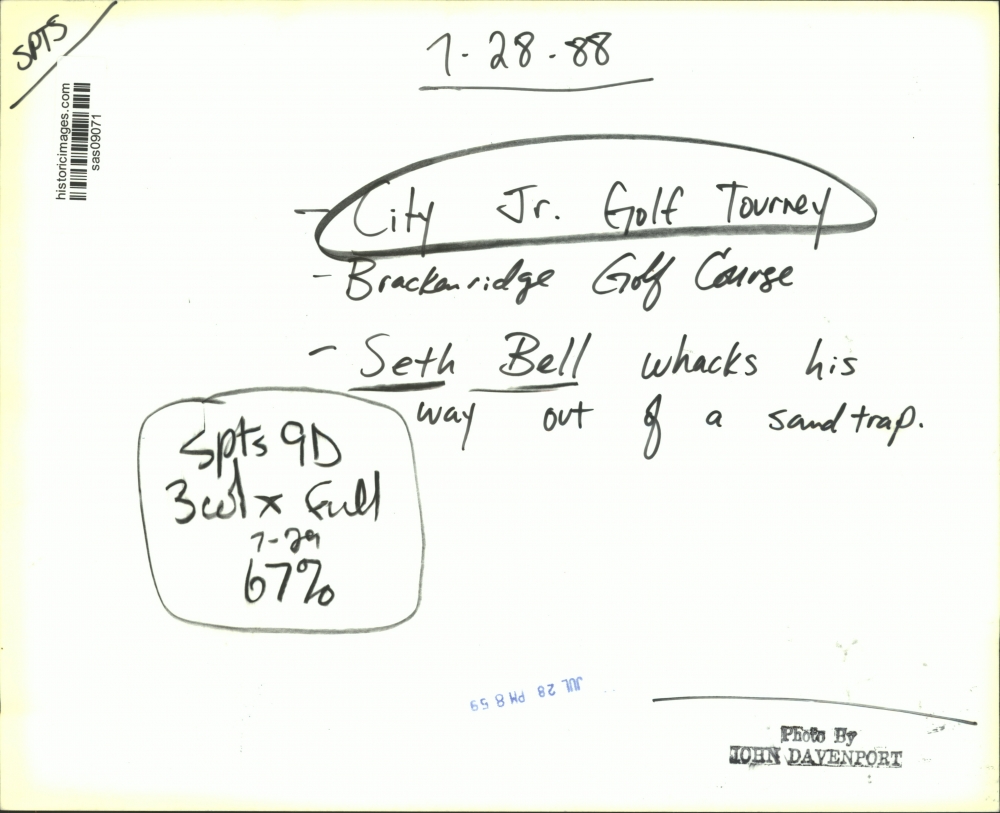 SPTS
7-28-88
historicimages.com
sas09071
- City Jr. Golf Tourney
- Brackenridge Golf Course
- Seth Bell whacks his
way out of a sand trap.
Spts 9D
3 col x Full
7-29
67%
JUL 28 PM 8 59
Photo By
JOHN DAVENPORT